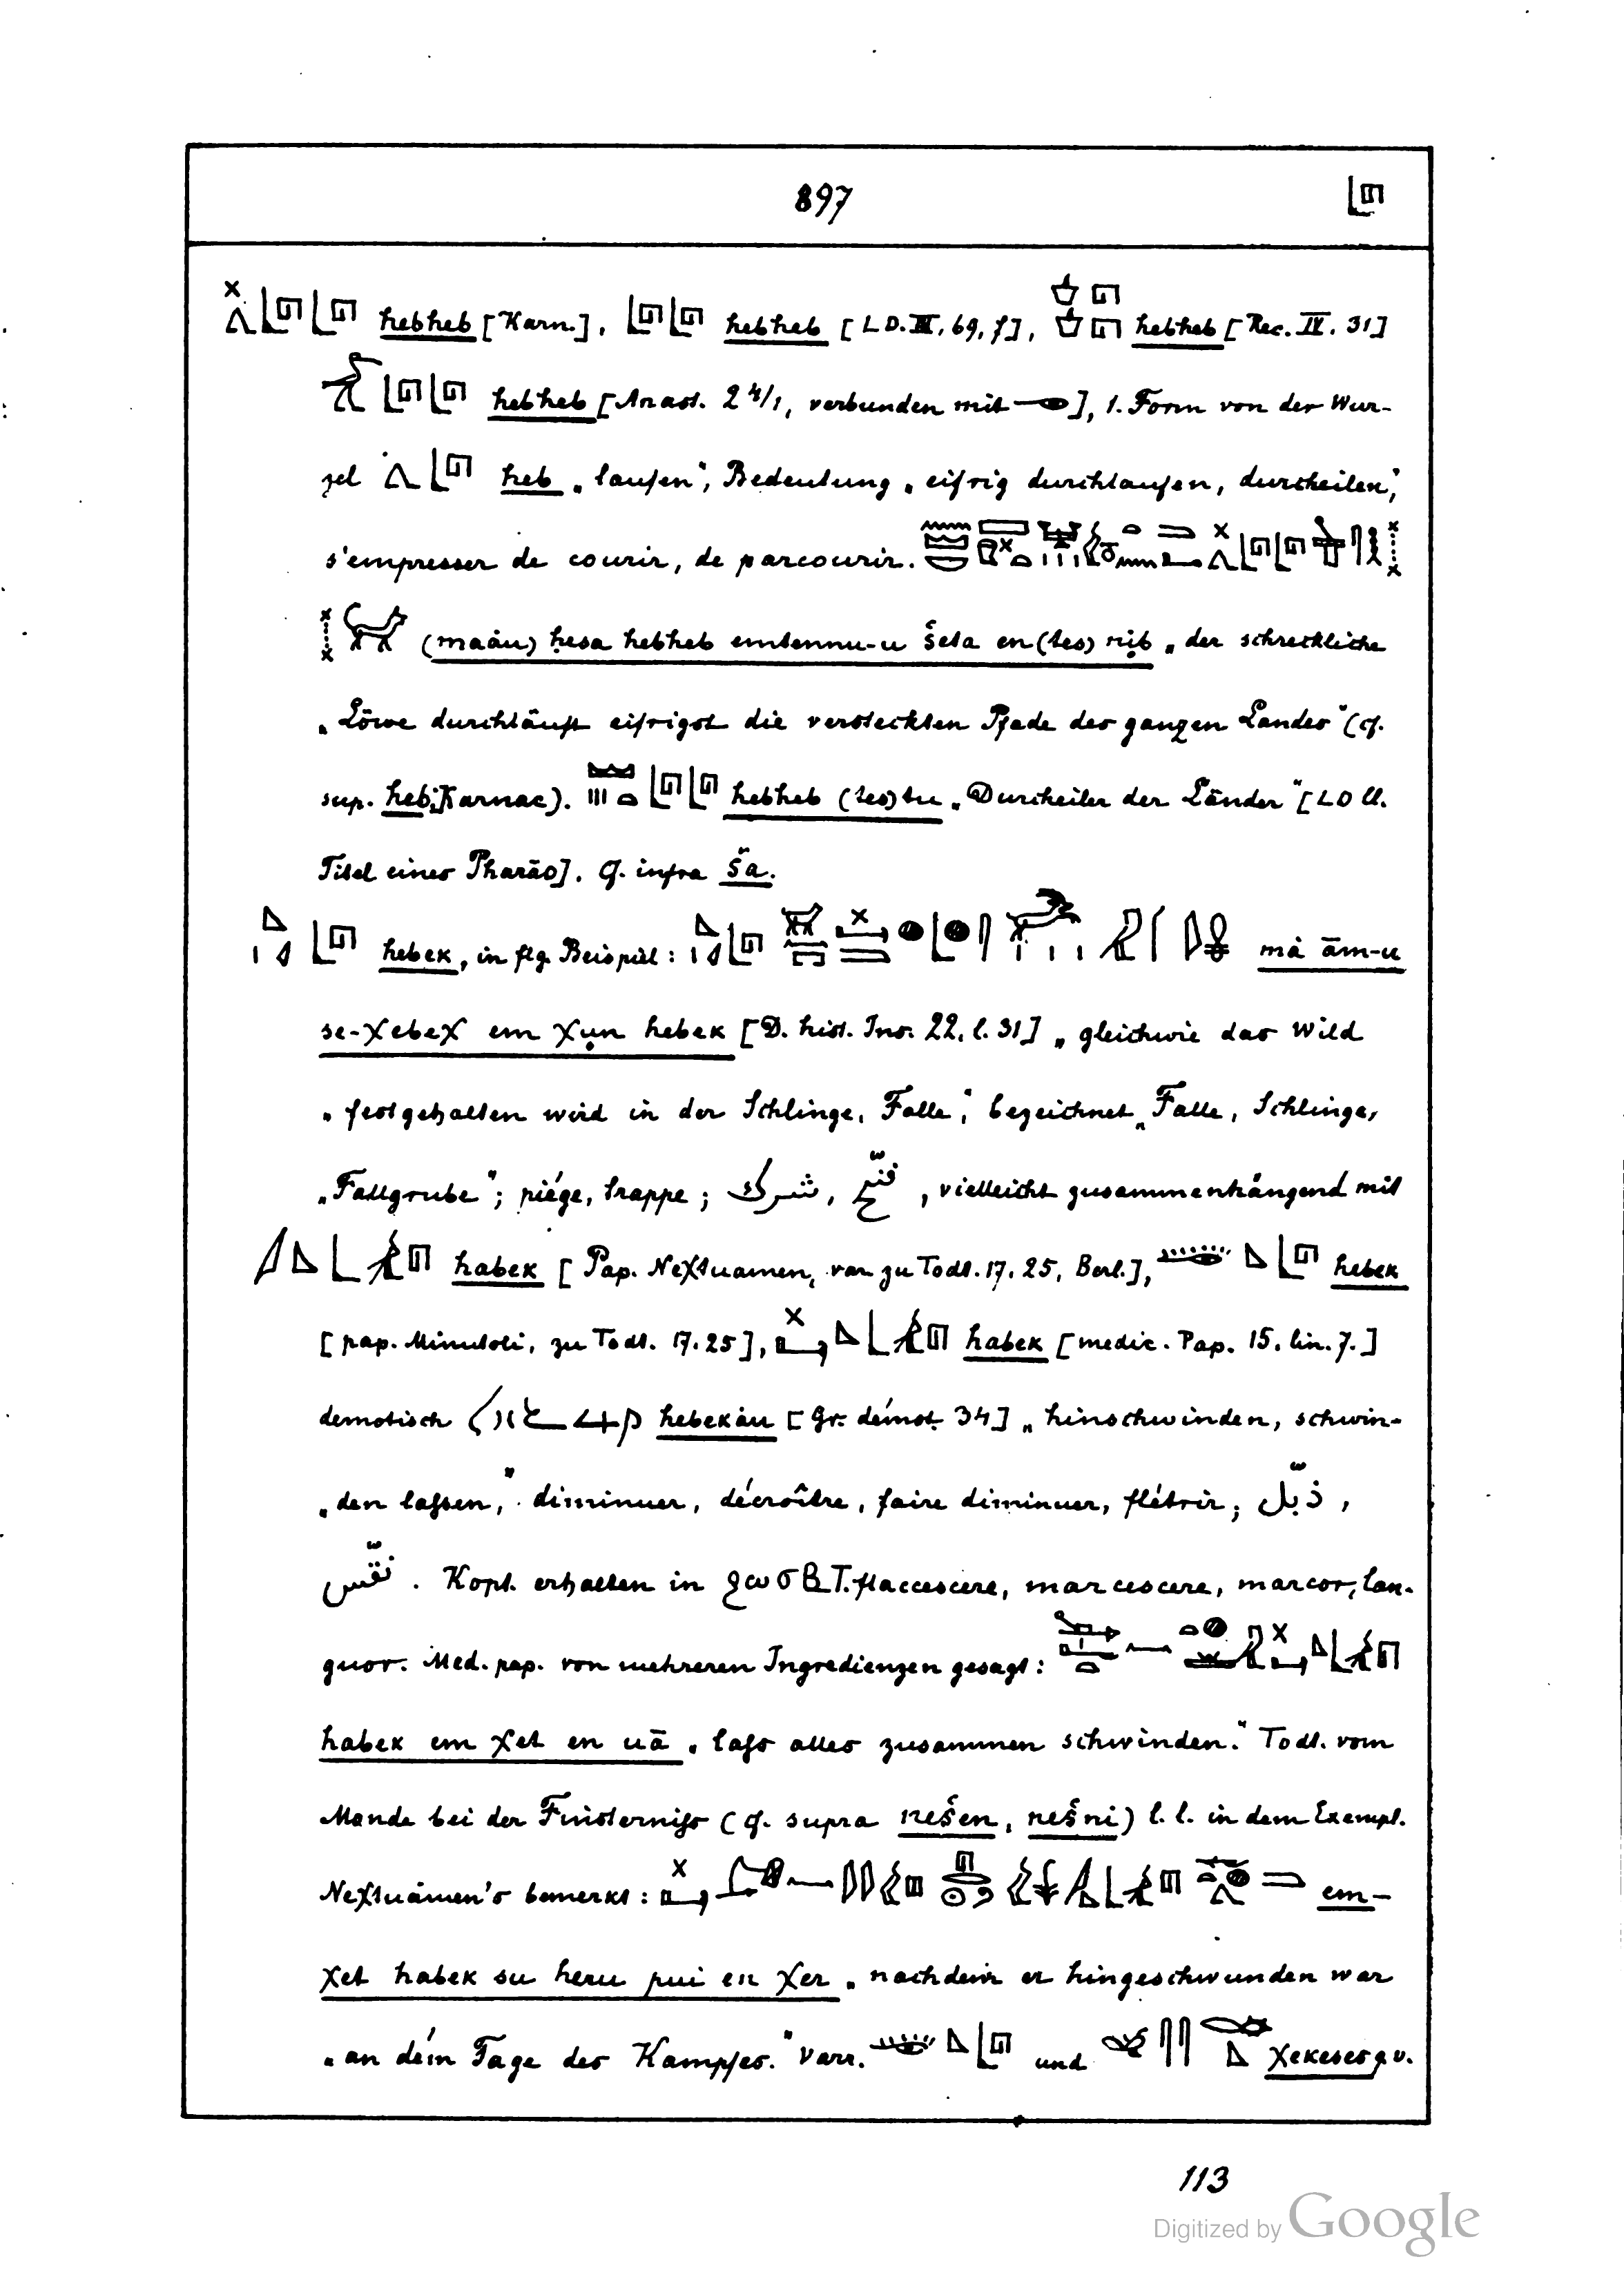 897
hebheb [Karn.], hebheb [LD. III. 69, f], hebheb [Rec. IV. 31]
hebheb [Anast. 2 4/1, verbunden mit ], 1. Form von der Wur-
zel heb „laufen“, Bedeutung „eifrig durchlaufen, durcheilen“,
s'empresser de courir, de parcourir.
(maȧu) ḥesa hebheb emtennu-u šeta en (tes) nib „der schreckliche
„Löwe durchläuft eifrigst die versteckten Pfade des ganzen Landes“ (cf.
sup. heb; Karnac). hebheb (tes)tu „Durcheiler der Länder“ [LD ll.
Titel eines Pharao]. Cf. infra ša.
hebek, in flg. Beispiel: mȧ ām-u
se-χebeχ em χun hebek [D. hist. Ins. 22. l. 31] „gleichwie das Wild
„festgehalten wird in der Schlinge, Falle“; bezeichnet „Falle, Schlinge,
„Fallgrube“; piége, trappe; شرك, فخّ, vielleicht zusammenhängend mit
habek [Pap. Neχtuamen, var zu Todt. 17. 25, Berl.], hebek
[pap. Minutoli, zu Todt. 17. 25], habek [medic. Pap. 15. lin. 7.]
demotisch hebekȧu [Gr. démot. 34] „hinschwinden, schwin-
„den lassen,“ diminuer, décroître, faire diminuer, flétrir; ذبّل,
نقّس. Kopt. erhalten in ϩωϭⲃ T. flaccescere, marcescere, marcor, lan-
guor. Med. pap. von mehreren Ingredienzen gesagt:
habek em χet en uā „lass alles zusammen schwinden.“ Todt. vom
Monde bei der Finsterniss (cf. supra nešen, nešni) l. l. in dem Exempl.
Neχtuȧmen's bemerkt: em-
χet habek su heru pui en χer „nachdem er hingeschwunden war
„an dem Tage des Kampfes.“ Varr. und χekeses q.v.
113
Digitized by Google